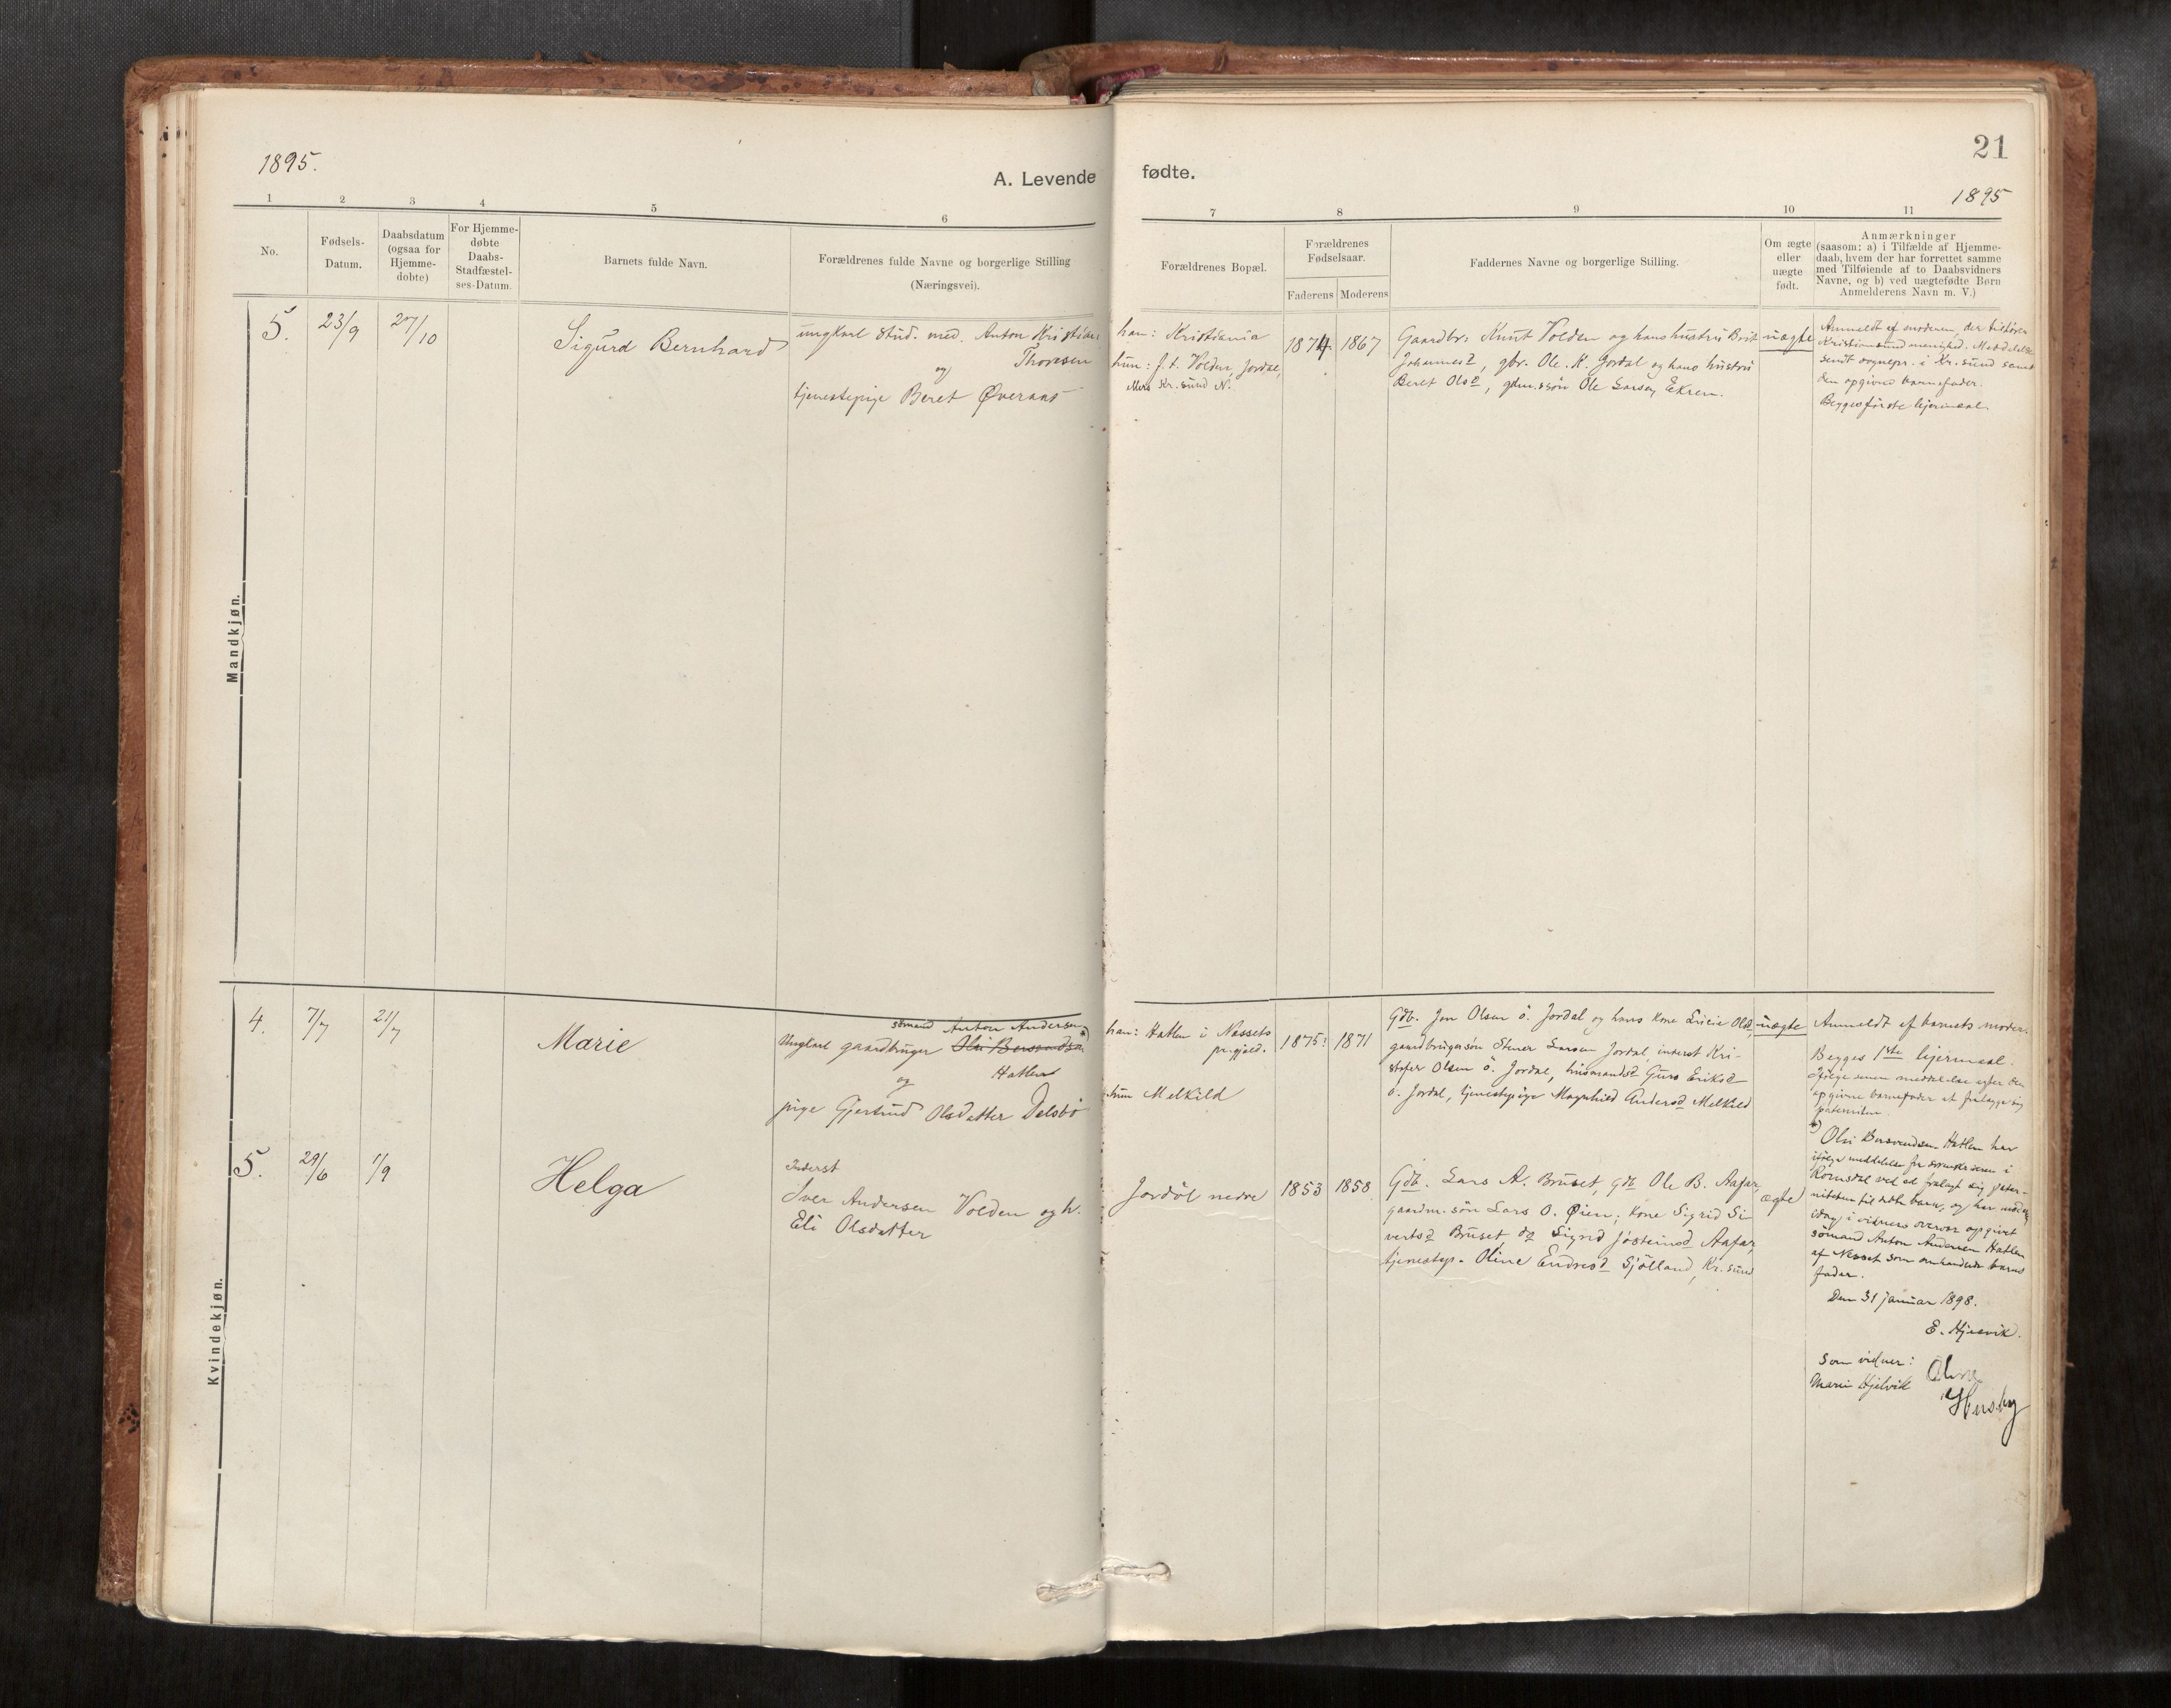 1895.
A. Levende
1 2 3 4 5 6
No.
Fødsels-
Datum.
Daabsdatum
(ogsaa for
Hjemme-
døbte)
For Hjemme-
døbte
Daabs-
Stadfæstel-
ses-Datum.
Barnets fulde Navn.
Forældrenes fulde Navne og borgerlige Stilling
(Næringsvei).
Mandkjøn.
5. 23/9 27/10
Sigurd Bernhard
ungkarl stud. med. Anton Kristian
Thoresen
og
tjenestepige Beret Øveraas
Kvindekjøn.
4. 7/7 21/7
Marie
sømand Anton Andersen *)
Ungkarl gaardbruger Ole Bersvendsen
Hatlen
og
pige Gjertrud Olsdatter Dalsbø
5. 29/6 1/9
Helga
Inderst
Iver Andersen Volden og h.
Eli Olsdatter
21
fødte.
1895
7 8 9 10 11
Forældrenes Bopæl.
Forældrenes
Fødselsaar.
Faderens
Moderens
Faddernes Navne og borgerlige Stilling.
Om ægte
eller
uægte
født.
Anmærkninger
(saasom: a) i Tilfælde af Hjemme-
daab, hvem der har forrettet samme
med Tilføiende af to Daabsvidners
Navne, og b) ved uægtefødte Børn
Anmelderens Navn m. V.)
han: Kristiania
hun: f. t. Volden, Jordal,
Kr.sund N.
1874 1867
Gaardbr: Knut Volden og hans hustru Brit
Johannesd, gbr. Ole K. Jordal og hans hustru
Beret Olsd, gdm.søn Ole Larsen Ekren.
uægte
Anmeldt af moderen, der tilhører
Kristiansund menighed. Meddelelse
sendt sognepr. i Kr.sund samt
den opgivne barnefader.
Begges første lejermaal.
han: Hatlen i Nessets
pr.gjæld.
hun Melkild
1875? 1871
Gdb. Jon Olsen ö. Jordal og hans kone Olsd,
gaardbrugersøn Stener Larsen Jordal, inderst Kri-
stofer Olsen ö. Jordal, husmandsd Guro Eriksd
ö. Jordal, tjenestepige Magnhild Andersd Melkild
uægte
Anmeldt af barnets moder.
Begges 1ste lejermaal.
Ifølge senere meddelelse agter den
opgivne barnefader at fralægge sig
paterniteten.
*) Ole Bersvendsen Hatlen har
ifølge meddelelse fra sorenskriveren i
Romsdal ved ed fralagt sig pater-
niteten til dette barn, og har moderen
idag i vidners overvær opgivet
sømand Anton Andersen Hatlen
af Nesset som omhandlede barns
fader.
Den 31 januar 1898.
E. Hjelvik.
Som vidner:
Marie Hjelvik
Husby
Jordal nedre
1853 1858
Gdb. Lars A. Bruset, gdb Ole B. Aafar,
gaardm.søn Lars O. Øien; kone Sigrid Si-
vertsd Bruset, do Sigrid Josteinsd Aafar,
tjenestep. Oline Endresd Sjølland, Kr.sund
ægte